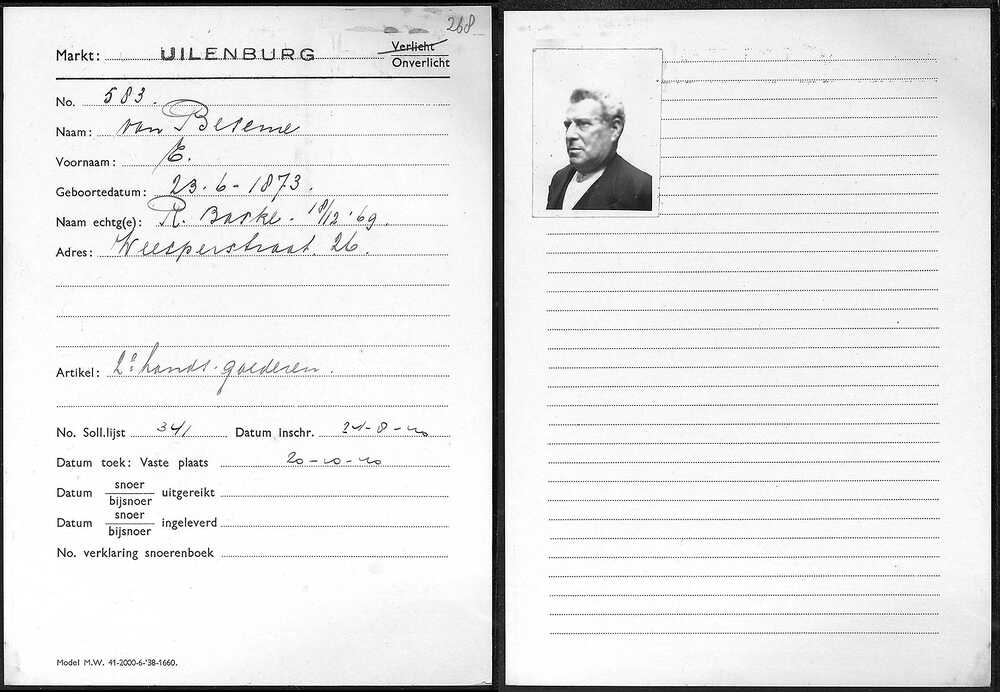 268
Markt: UILENBURG Verlicht
Onverlicht
No. 583.
Naam: van Beseme
Voornaam: E.
Geboortedatum: 23-6-1873.
Naam echtg(e): R. Barke - 18/12 '69.
Adres: Weesperstraat. 26.
Artikel: 2e hands. goederen.
No. Soll.lijst 341 Datum Inschr. 24-8-40
Datum toek: Vaste plaats 20-10-40
Datum snoer
bijsnoer uitgereikt
Datum snoer
bijsnoer ingeleverd
No. verklaring snoerenboek
Model M.W. 41-2000-6-'38-1660.